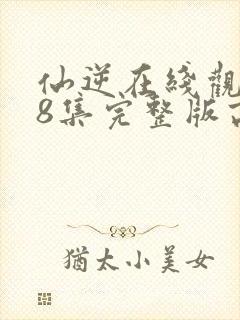 仙逆在綫觀
8集完整版
猶太小美女